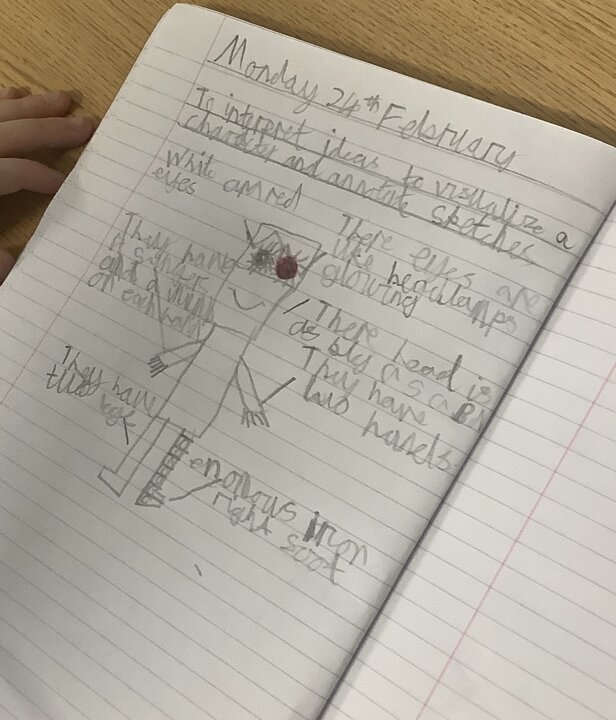 Monday 24th February
To interpret ideas to visualize a
character and annotate sketches
White and red
eyes
There eyes are
like headlamps
glowing
They have
4 finger
and a thumb
on each hand
There head is
as big as a
They have
two hands.
They have
two legs
enormous iron
right foot